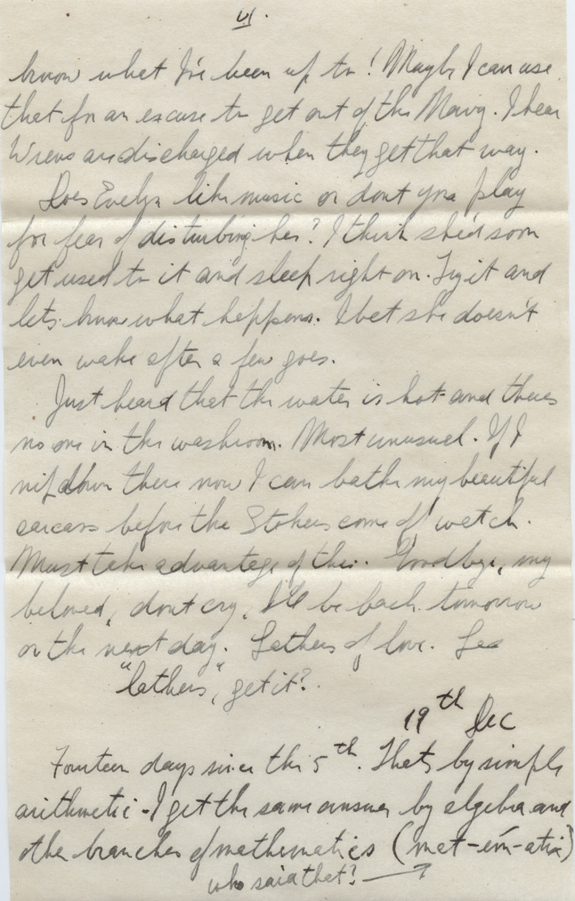 VI.
know what I've been up to! Maybe I can use
that for an excuse to get out of the Navy. I hear
Wrens are discharged when they get that way.
Does Evelyn like music or dont you play
for fear of disturbing her? I think she'd soon
get used to it and sleep right on. Try it and
lets know what happens. I bet she doesn't
even wake after a few goes.
Just heard that the water is hot and theres
no one in the washroom. Most unusual. If I
nip down there now I can bathe my beautiful
carcass before the Stokers come off watch.
Must take advantage of this. Goodbye, my
beloved, dont cry, I'll be back tomorrow
or the next day. Lathers of love. Les
"lathers", get it?
19th Dec
Fourteen days since the 5th. Thats by simple
arithmetic - I get the same answer by algebra and
other branches of mathematics (met-em-atix)
who said that?